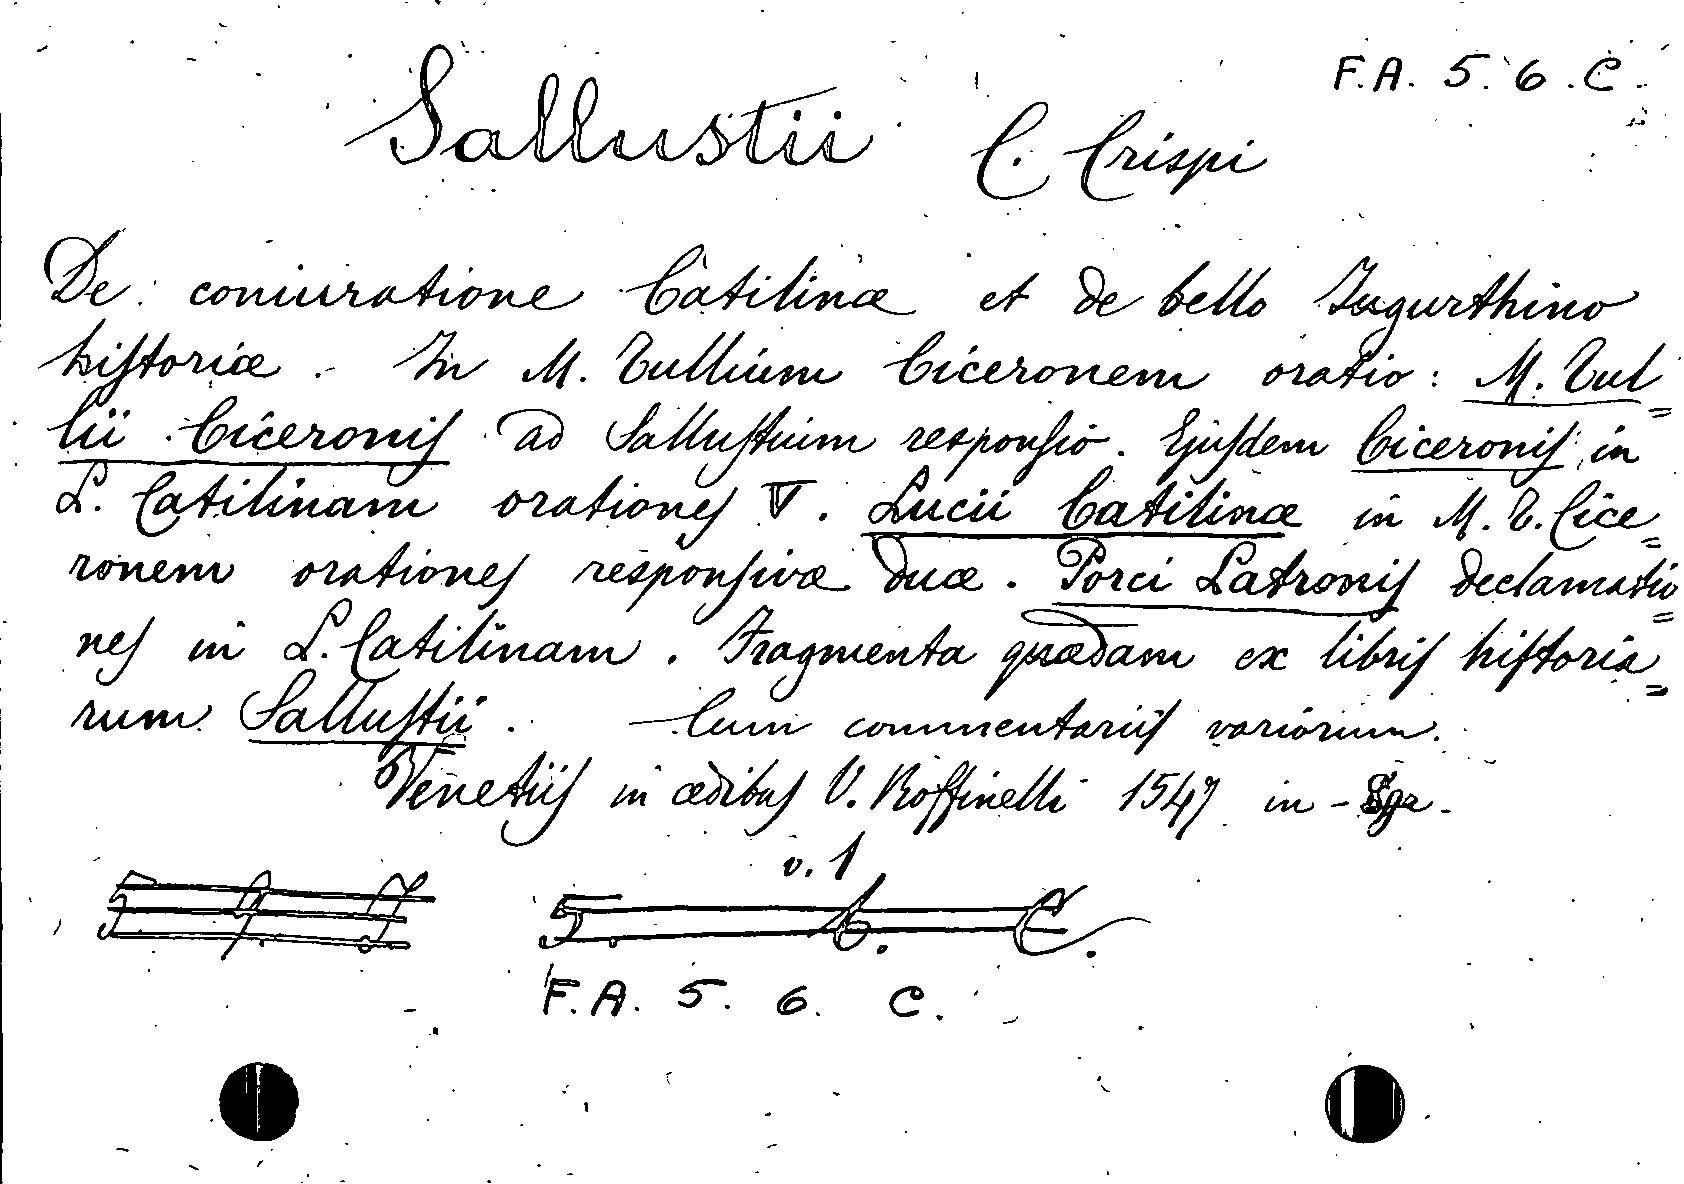 F.A. 5. 6. C.
Sallustii C. Crispi
De coniuratione Catilinæ et de bello Iugurthino
historiæ. In M. Tullium Ciceronem oratio: M. Tul=
lii Ciceronis ad Sallustium responsio. Ejusdem Ciceronis in
L. Catilinam orationes V. Lucii Catilinæ in M. T. Cice=
ronem orationes responsivæ duæ. Porci Latronis declamatio=
nes in L. Catilinam. Fragmenta quædam ex libris historia=
rum Sallustii. Cum commentariis variorum.
Venetiis in ædibus V. Roffinelli 1547 in-
v. 1
5. 6. C.
F.A. 5. 6. C.